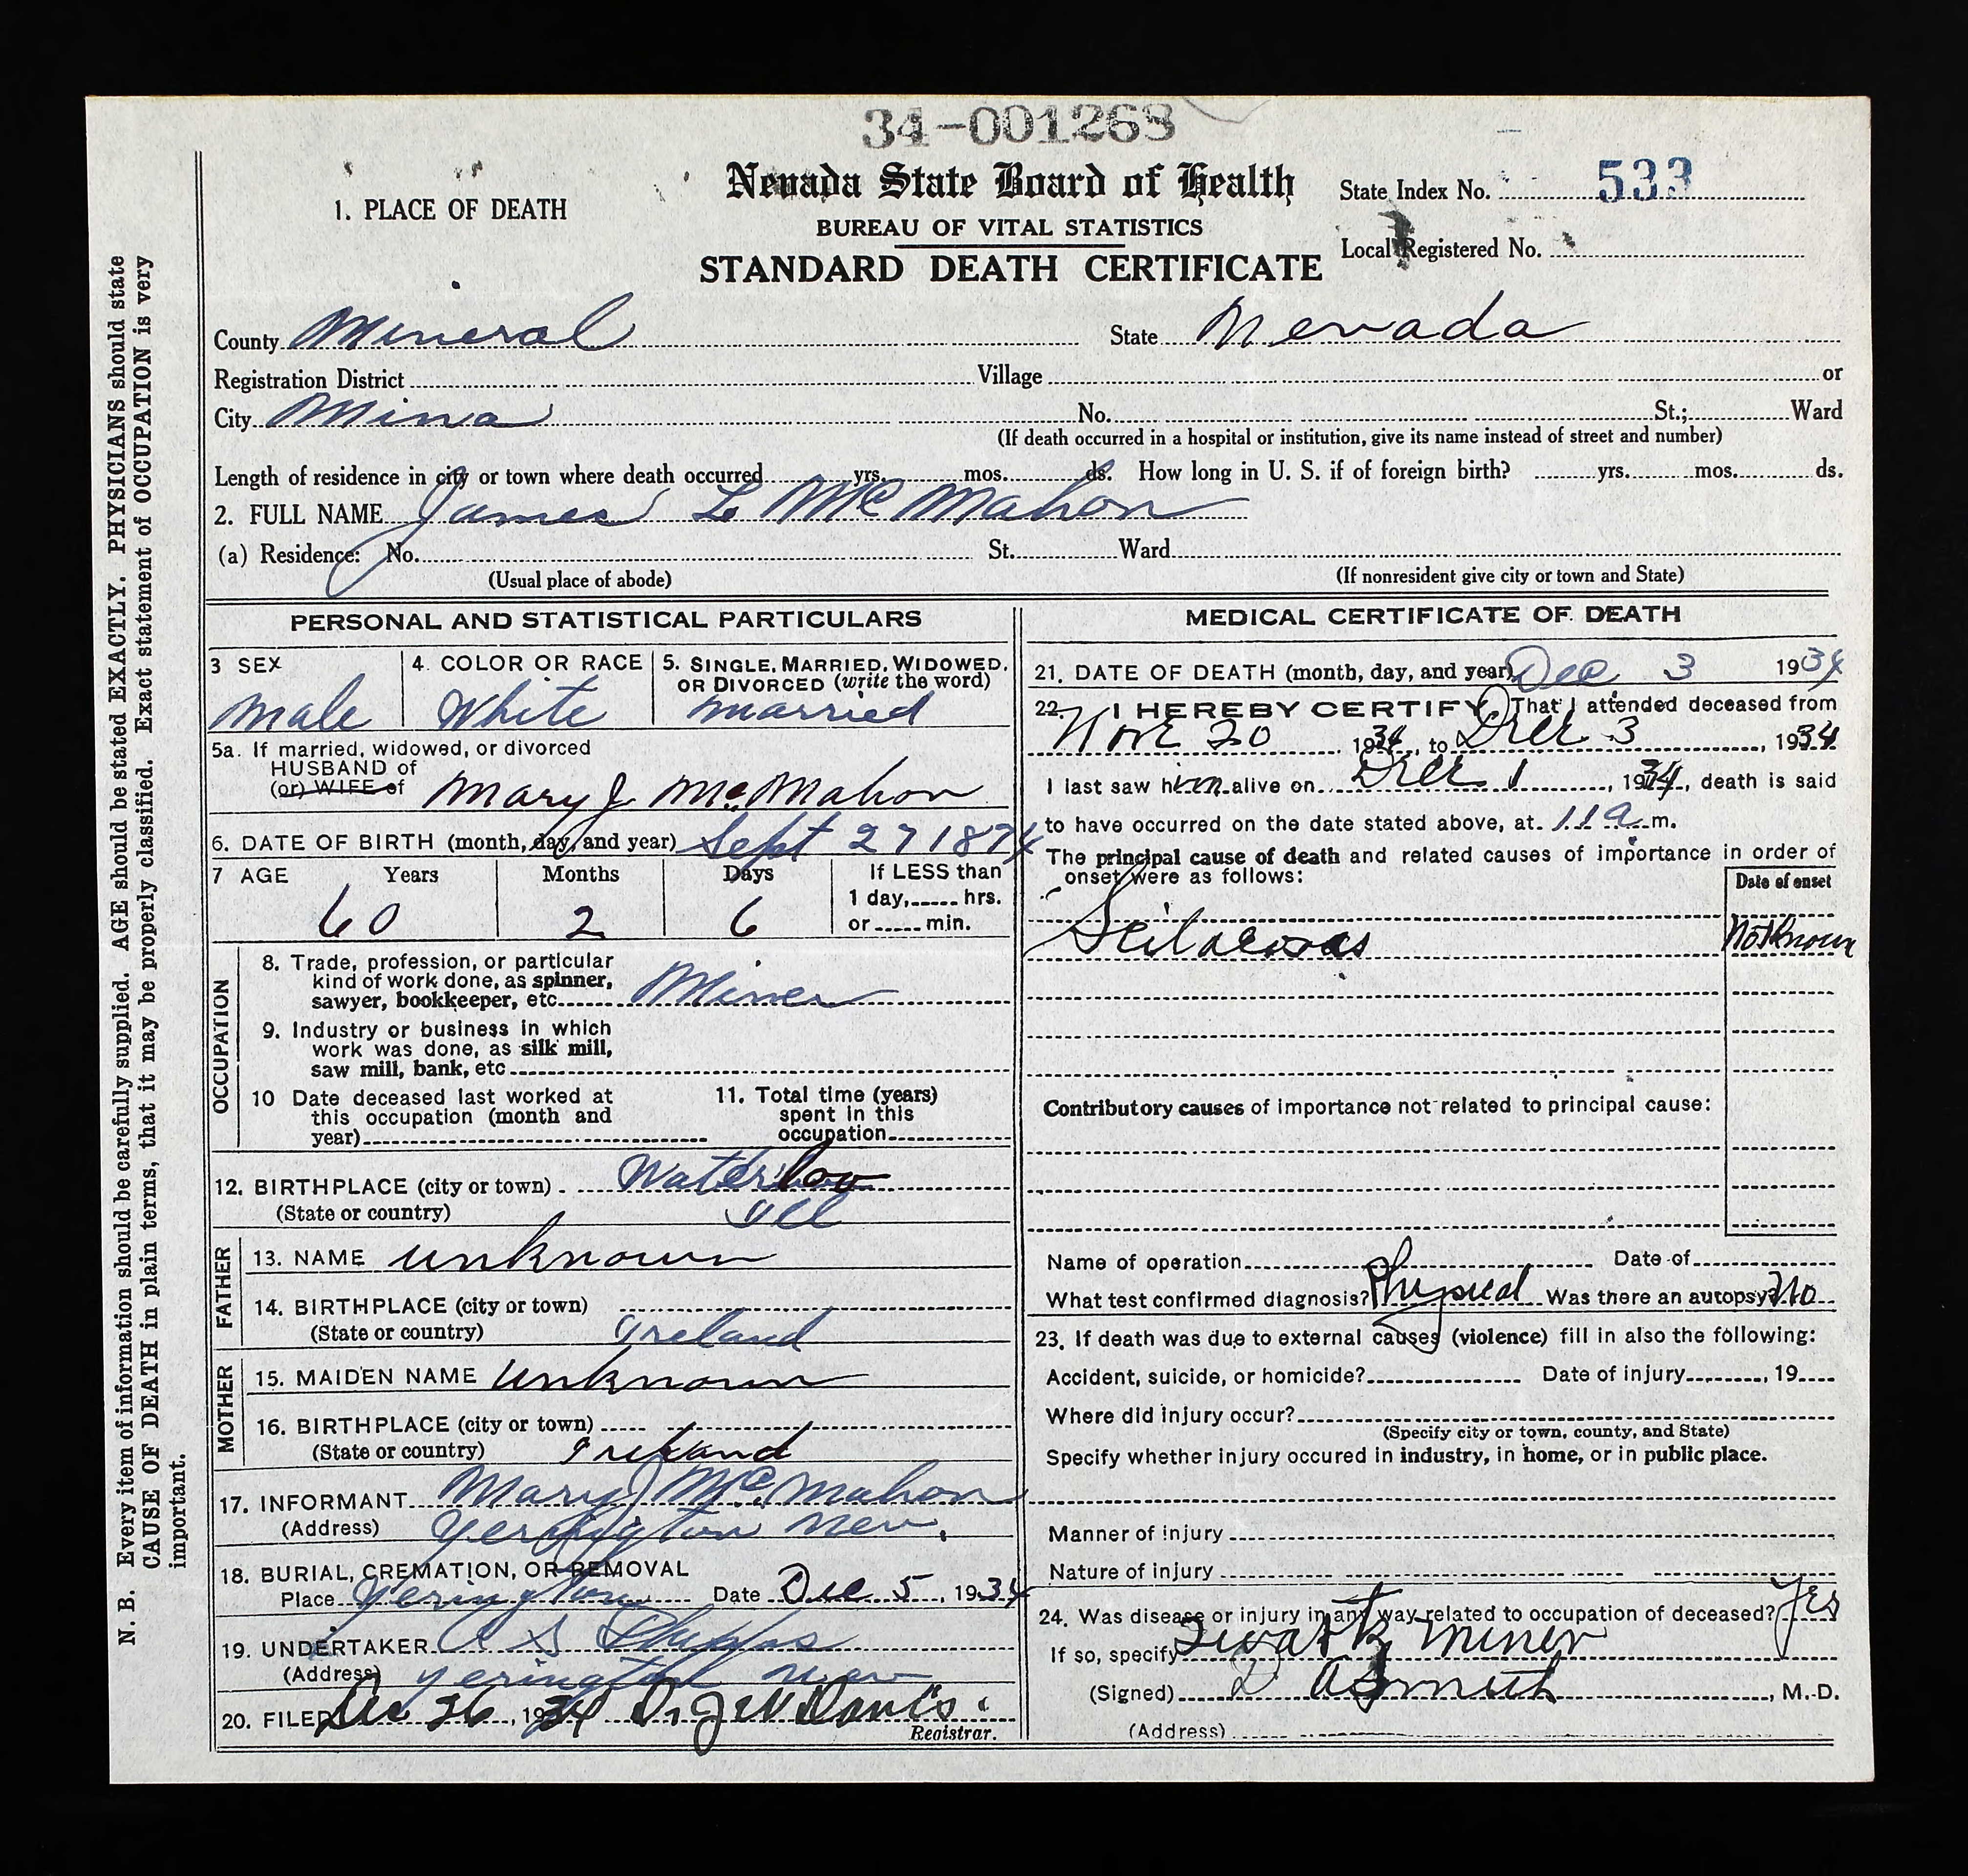 34-001268
Nevada State Board of Health
BUREAU OF VITAL STATISTICS
STANDARD DEATH CERTIFICATE
State Index No. 533
Local Registered No.
1. PLACE OF DEATH
County Mineral State Nevada
Registration District Village or
City Mina No. St.; Ward
(If death occurred in a hospital or institution, give its name instead of street and number)
Length of residence in city or town where death occurred yrs. mos. ds. How long in U. S. if of foreign birth? yrs. mos. ds.
2. FULL NAME James L McMahon
(a) Residence: No. St. Ward
(Usual place of abode) (If nonresident give city or town and State)
PERSONAL AND STATISTICAL PARTICULARS
3 SEX Male
4. COLOR OR RACE White
5. SINGLE, MARRIED, WIDOWED, OR DIVORCED (write the word) married
5a. If married, widowed, or divorced
HUSBAND of
(or) WIFE of Mary J McMahon
6. DATE OF BIRTH (month, day, and year) Sept 27 1874
7 AGE Years Months Days If LESS than
1 day, hrs.
60 2 6 or min.
OCCUPATION
8. Trade, profession, or particular
kind of work done, as spinner,
sawyer, bookkeeper, etc. Miner
9. Industry or business in which
work was done, as silk mill,
saw mill, bank, etc
10 Date deceased last worked at
this occupation (month and
year)
11. Total time (years)
spent in this
occupation
12. BIRTHPLACE (city or town) Waterlow
(State or country) Ill
FATHER
13. NAME unknown
14. BIRTHPLACE (city or town)
(State or country) Ireland
MOTHER
15. MAIDEN NAME unknown
16. BIRTHPLACE (city or town)
(State or country) Ireland
17. INFORMANT Mary J McMahon
(Address) Yerington Nev.
18. BURIAL, CREMATION, OR REMOVAL
Place Yerington Date Dec 5, 1934
19. UNDERTAKER
(Address) Yerington Nev
20. FILED Dec 26, 1934 Dr J W Davis
Registrar.
MEDICAL CERTIFICATE OF DEATH
21. DATE OF DEATH (month, day, and year) Dec 3 1934
22. I HEREBY CERTIFY, That I attended deceased from
Nov 20 1934, to Dec 3, 1934
I last saw him alive on Dec 1, 1934, death is said
to have occurred on the date stated above, at 11 a m.
The principal cause of death and related causes of importance in order of
onset were as follows:
Date of onset
Not Known
Contributory causes of importance not related to principal cause:
Name of operation Date of
What test confirmed diagnosis? Physical Was there an autopsy? no
23. If death was due to external causes (violence) fill in also the following:
Accident, suicide, or homicide? Date of injury, 19
Where did injury occur?
(Specify city or town, county, and State)
Specify whether injury occured in industry, in home, or in public place.
Manner of injury
Nature of injury
24. Was disease or injury in any way related to occupation of deceased? Yes
If so, specify miner
(Signed), M.D.
(Address)
N. B. Every item of information should be carefully supplied. AGE should be stated EXACTLY. PHYSICIANS should state
CAUSE OF DEATH in plain terms, that it may be properly classified. Exact statement of OCCUPATION is very
important.